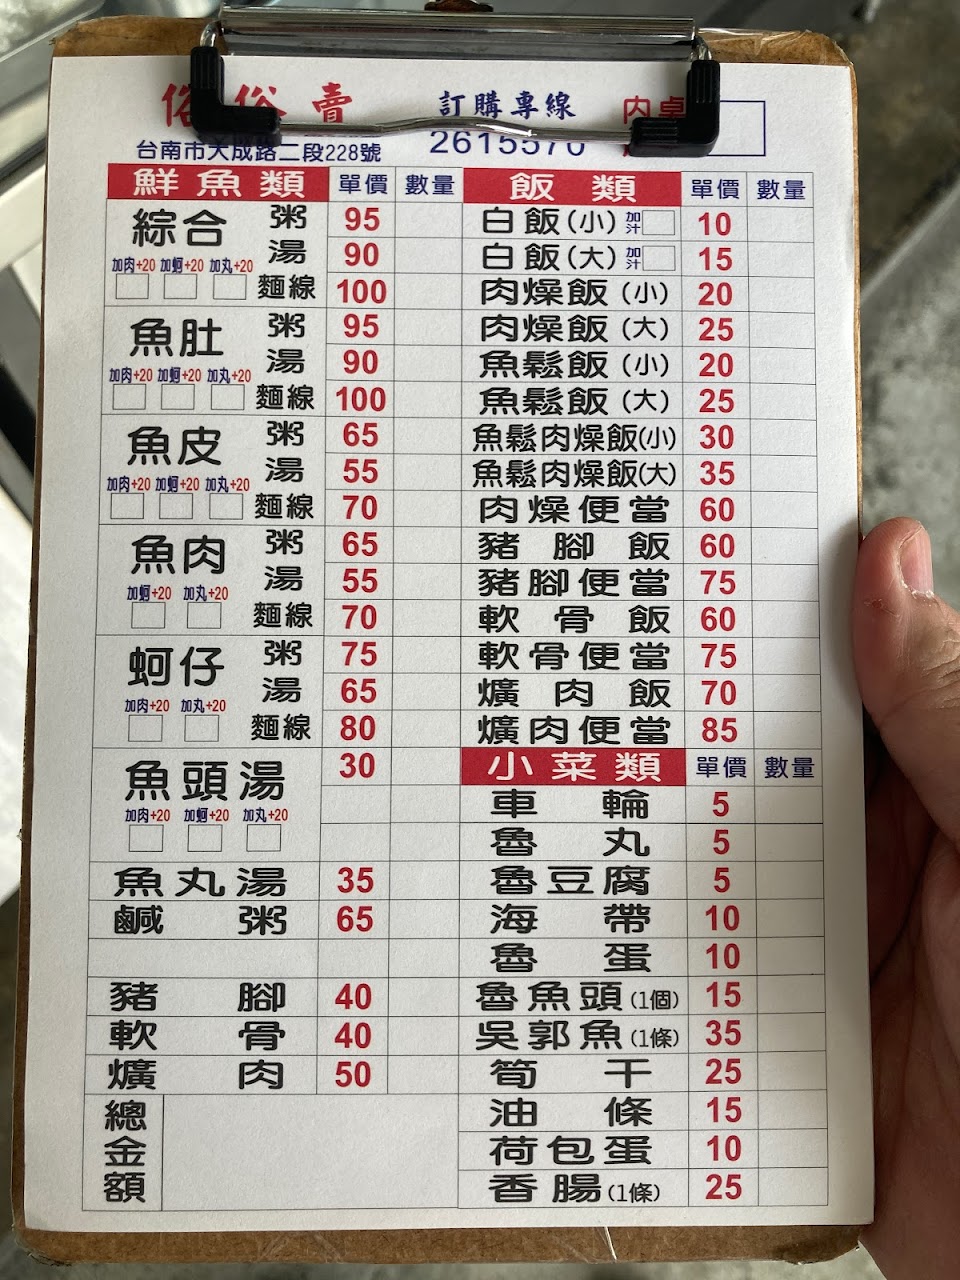 俗俗賣
訂購專線
內桌
台南市大成路二段228號
2615570
鮮魚類 單價 數量
綜合 粥 95
湯 90
麵線 100
加肉+20 加蚵+20 加丸+20
魚肚 粥 95
湯 90
麵線 100
加肉+20 加蚵+20 加丸+20
魚皮 粥 65
湯 55
麵線 70
加肉+20 加蚵+20 加丸+20
魚肉 粥 65
湯 55
麵線 70
加蚵+20 加丸+20
蚵仔 粥 75
湯 65
麵線 80
加肉+20 加丸+20
魚頭湯 30
加肉+20 加蚵+20 加丸+20
魚丸湯 35
鹹粥 65
豬腳 40
軟骨 40
爌肉 50
總金額
飯類 單價 數量
白飯(小) 加汁 10
白飯(大) 加汁 15
肉燥飯(小) 20
肉燥飯(大) 25
魚鬆飯(小) 20
魚鬆飯(大) 25
魚鬆肉燥飯(小) 30
魚鬆肉燥飯(大) 35
肉燥便當 60
豬腳飯 60
豬腳便當 75
軟骨飯 60
軟骨便當 75
爌肉飯 70
爌肉便當 85
小菜類 單價 數量
車輪 5
魯丸 5
魯豆腐 5
海帶 10
魯蛋 10
魯魚頭(1個) 15
吳郭魚(1條) 35
筍干 25
油條 15
荷包蛋 10
香腸(1條) 25